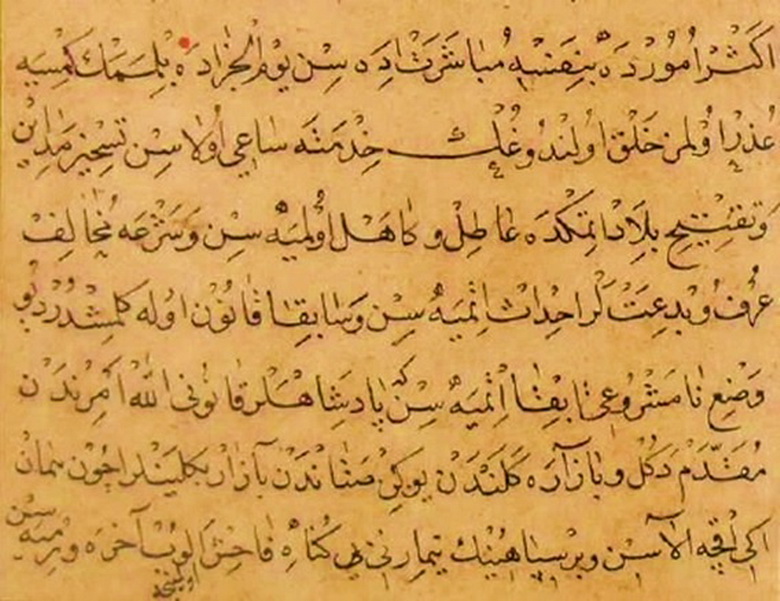 اكثر امورده بنفسه مباشرت ايده سن يوم الجزاده بلممك كمسيه
عذر اولمز خلق اولندوغك خدمته ساعى اولاسن تسخير مداين
وتفتيح بلاد ايتمكده عاطل و كاهل اولميه سن وشرعه مخالف
عرف و بدعتلر احداث اتميه سن وسابقا قانون اوله كلمشدر ديو
وضع نا مشروعى ابقا اتميه سن كه پادشاهلر قانونى الله امرندن
مقدم دكل و بازاره كلندن يوكى صتاندن بازار بكليندر اچون
اكى اقچه الاسن وبر سپاهينك تيمارنى بى كناه فاحش الوب آخره ويرميه سن